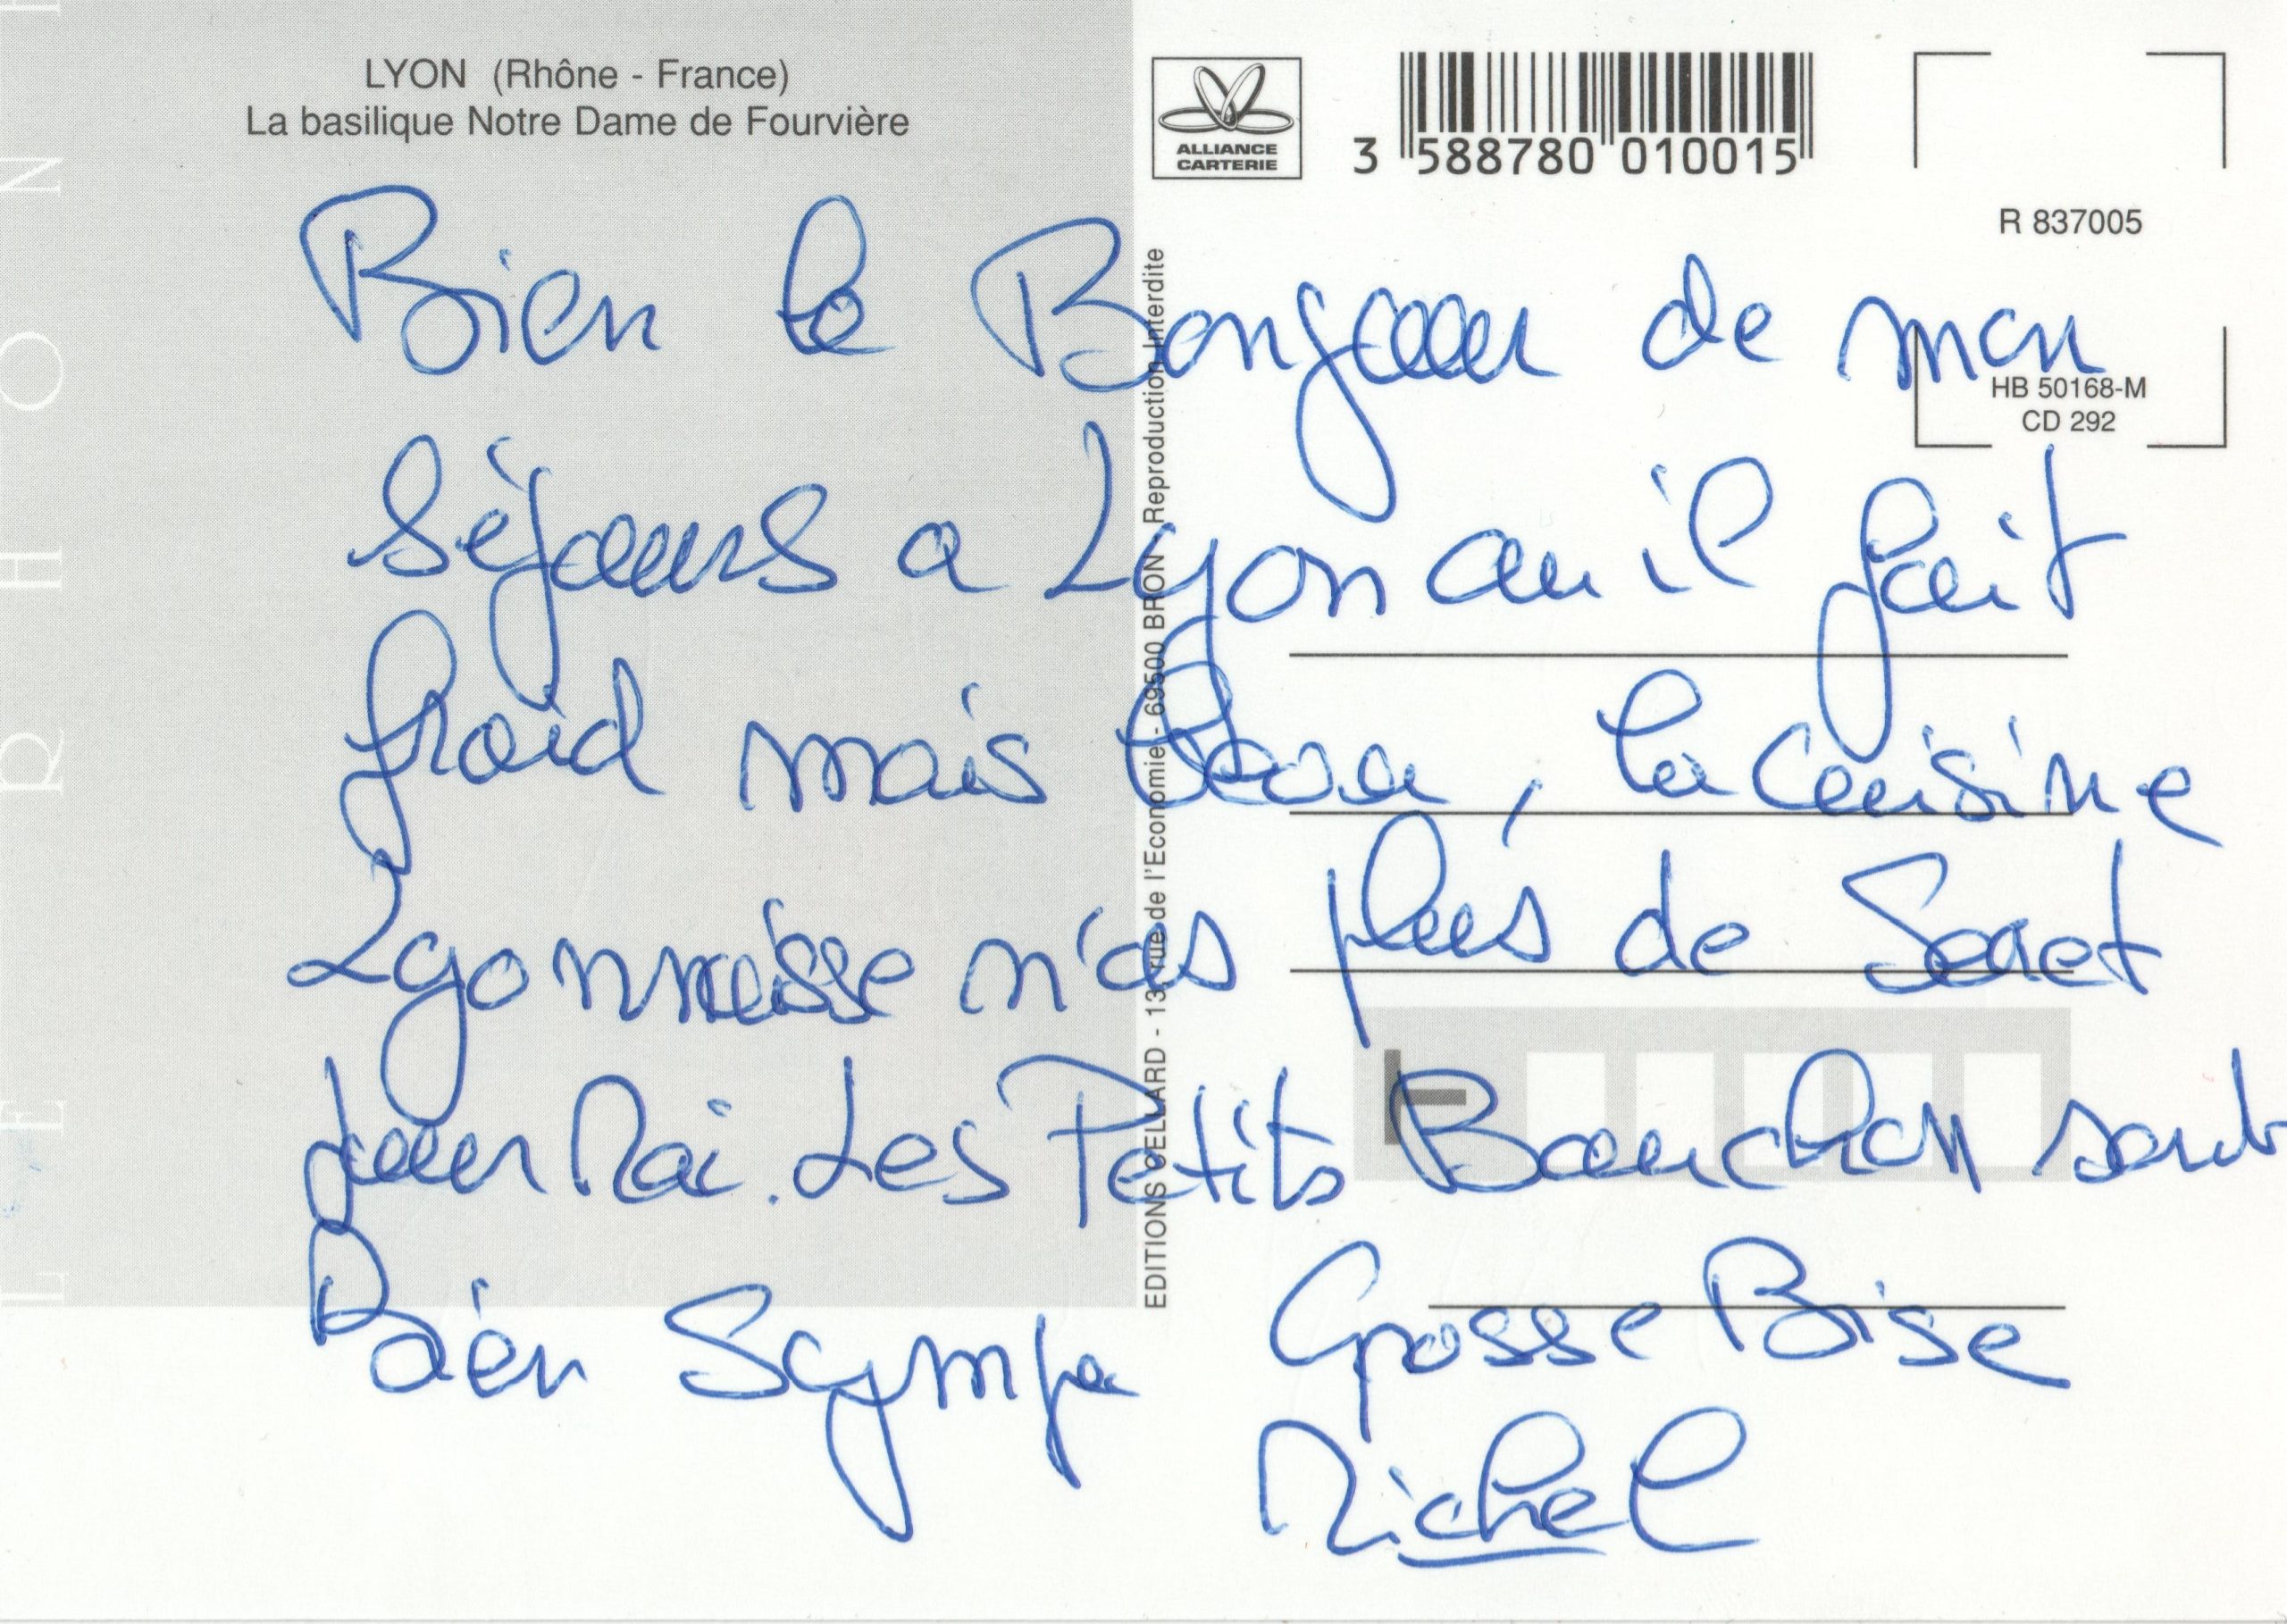 LYON (Rhône - France)
La basilique Notre Dame de Fourvière
ALLIANCE
CARTERIE
3 588780 010015
R 837005
HB 50168-M
CD 292
LE RHONE
EDITIONS CELLARD - 13, rue de l'Economie - 69500 BRON Reproduction Interdite
Bien le Bonjour de mon
séjours a Lyon ou il fait
froid mais beau, la Cuisine
Lyonnaisse n'as plus de Secret
pour Moi. Les Petits Bouchon sont
Bien Sympa Grosse Bise
Michel